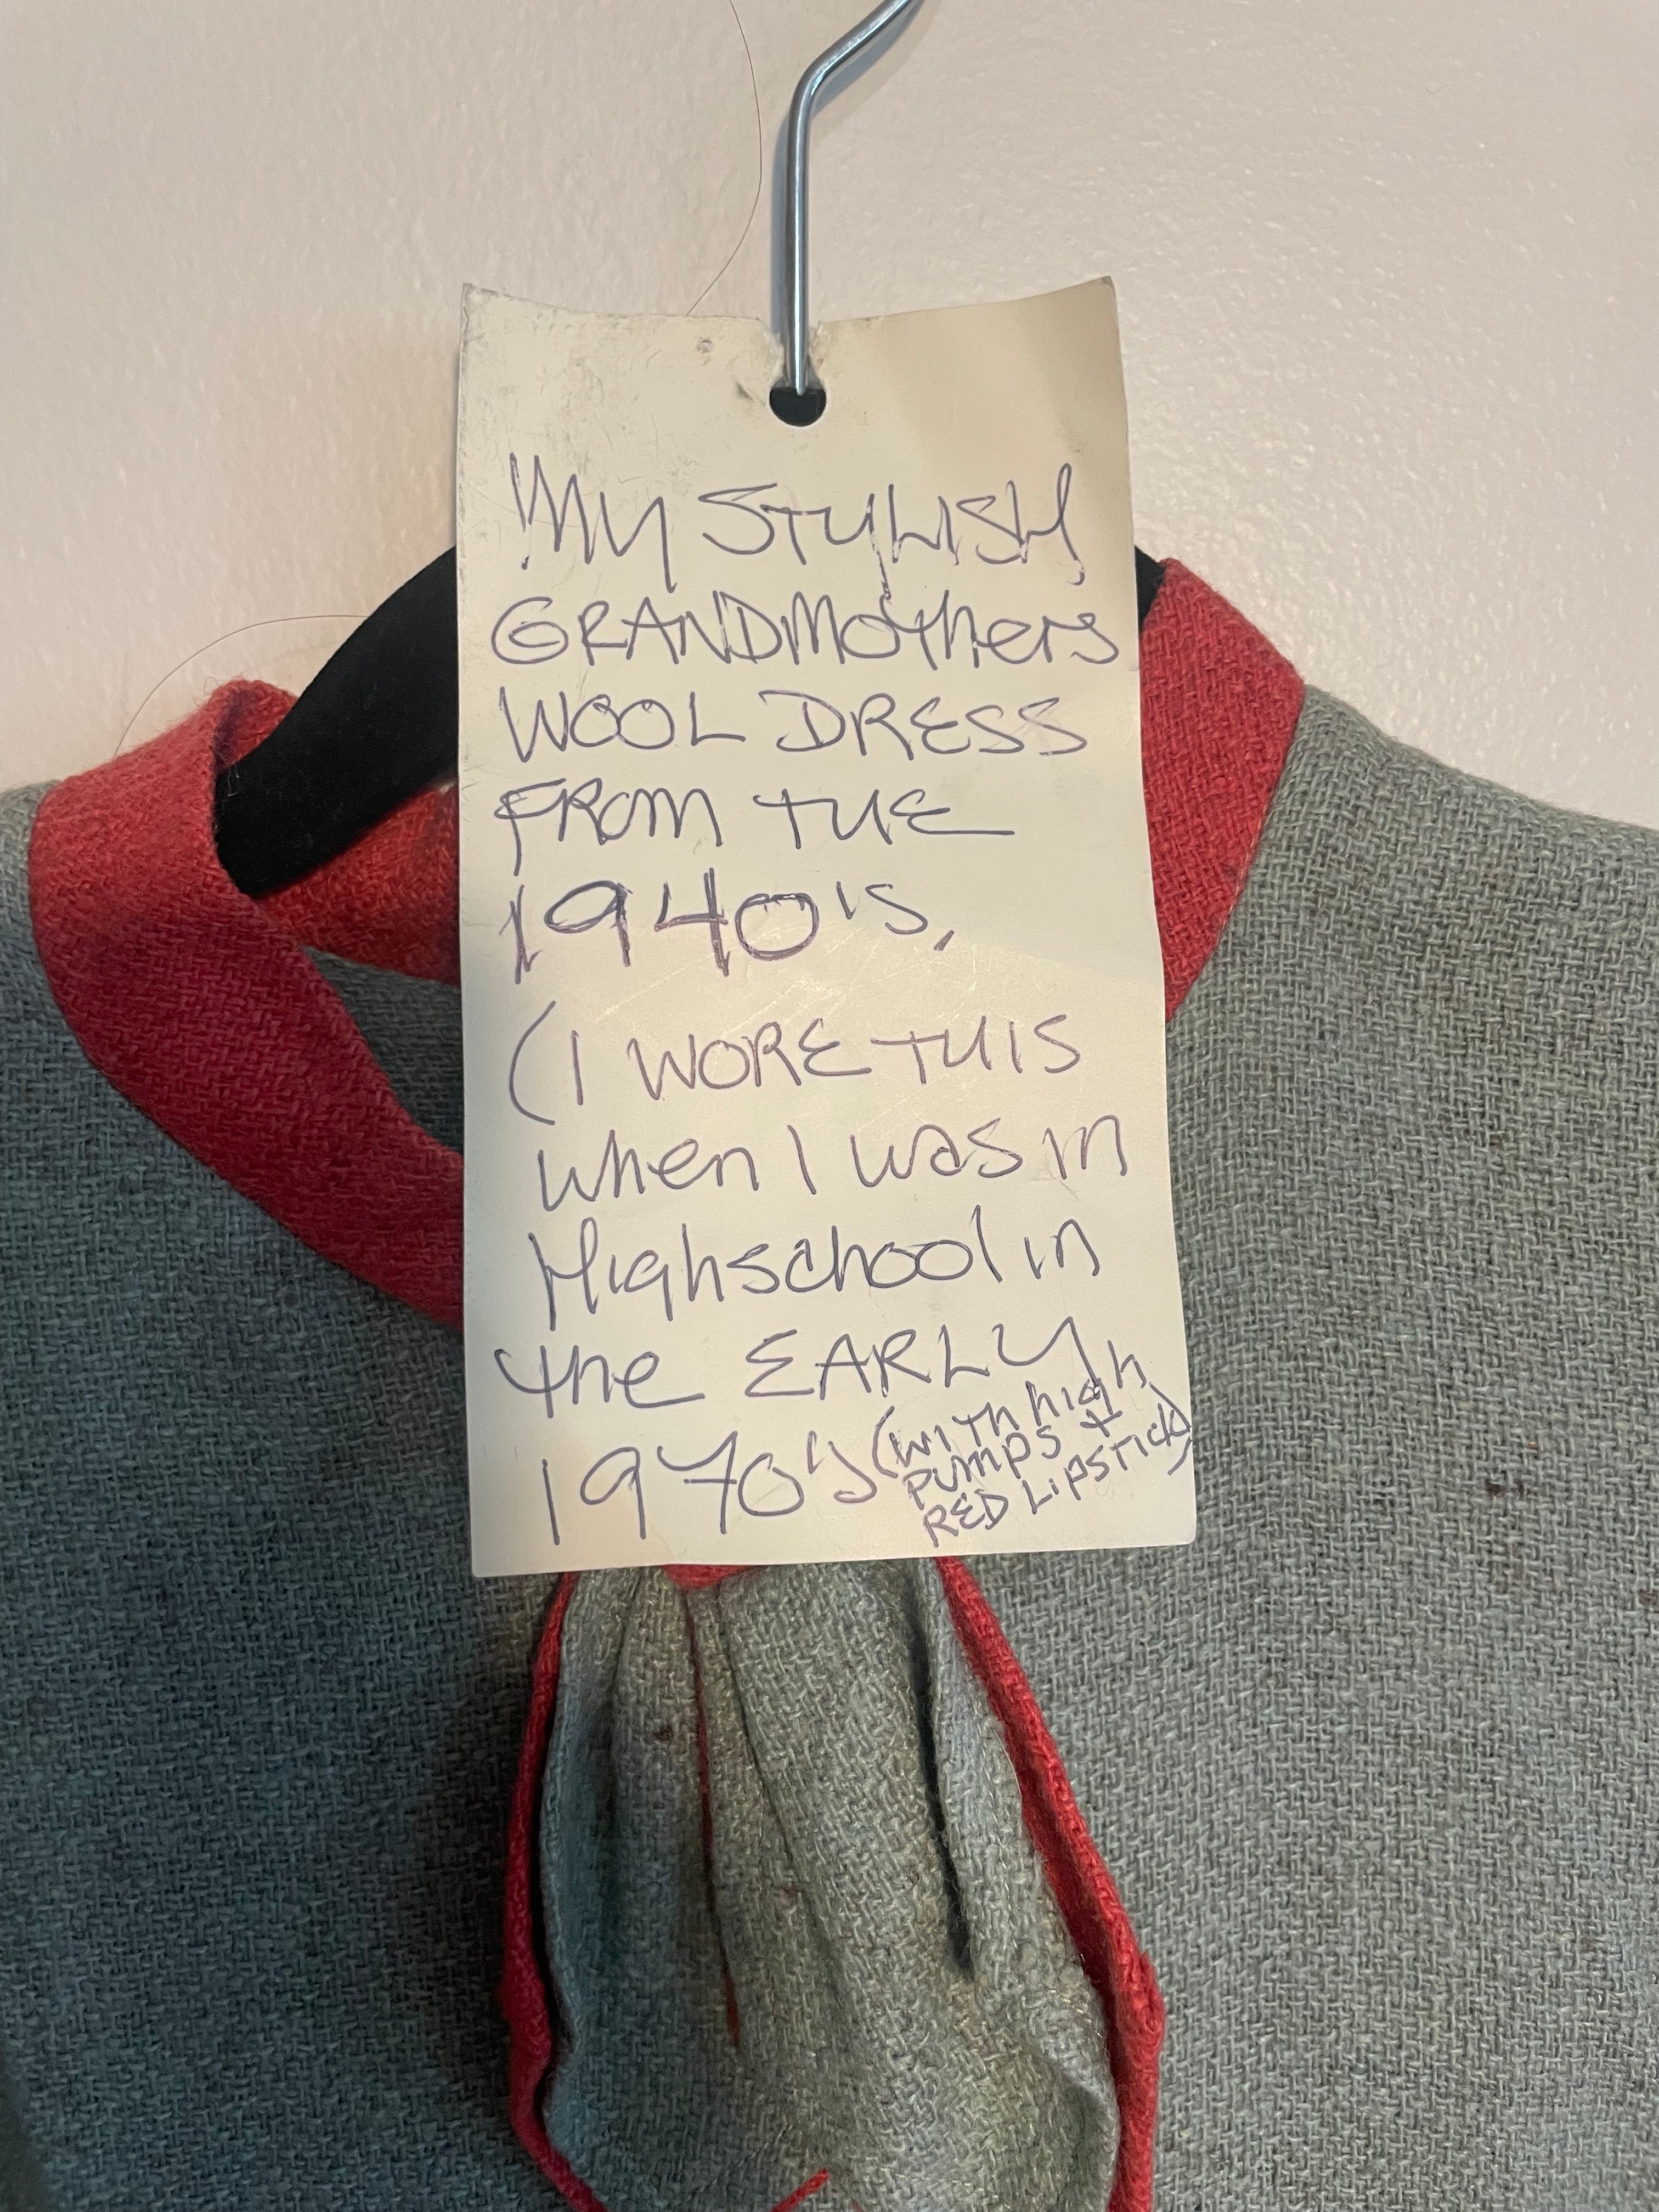 My STYLISH
GRANDMOthers
WOOL DRESS
FROM THE
1940's.
(I WORE THIS
when I was in
Highschool in
the EARLY
1970's (WITH high
PUMPS +
RED LIPSTICK)